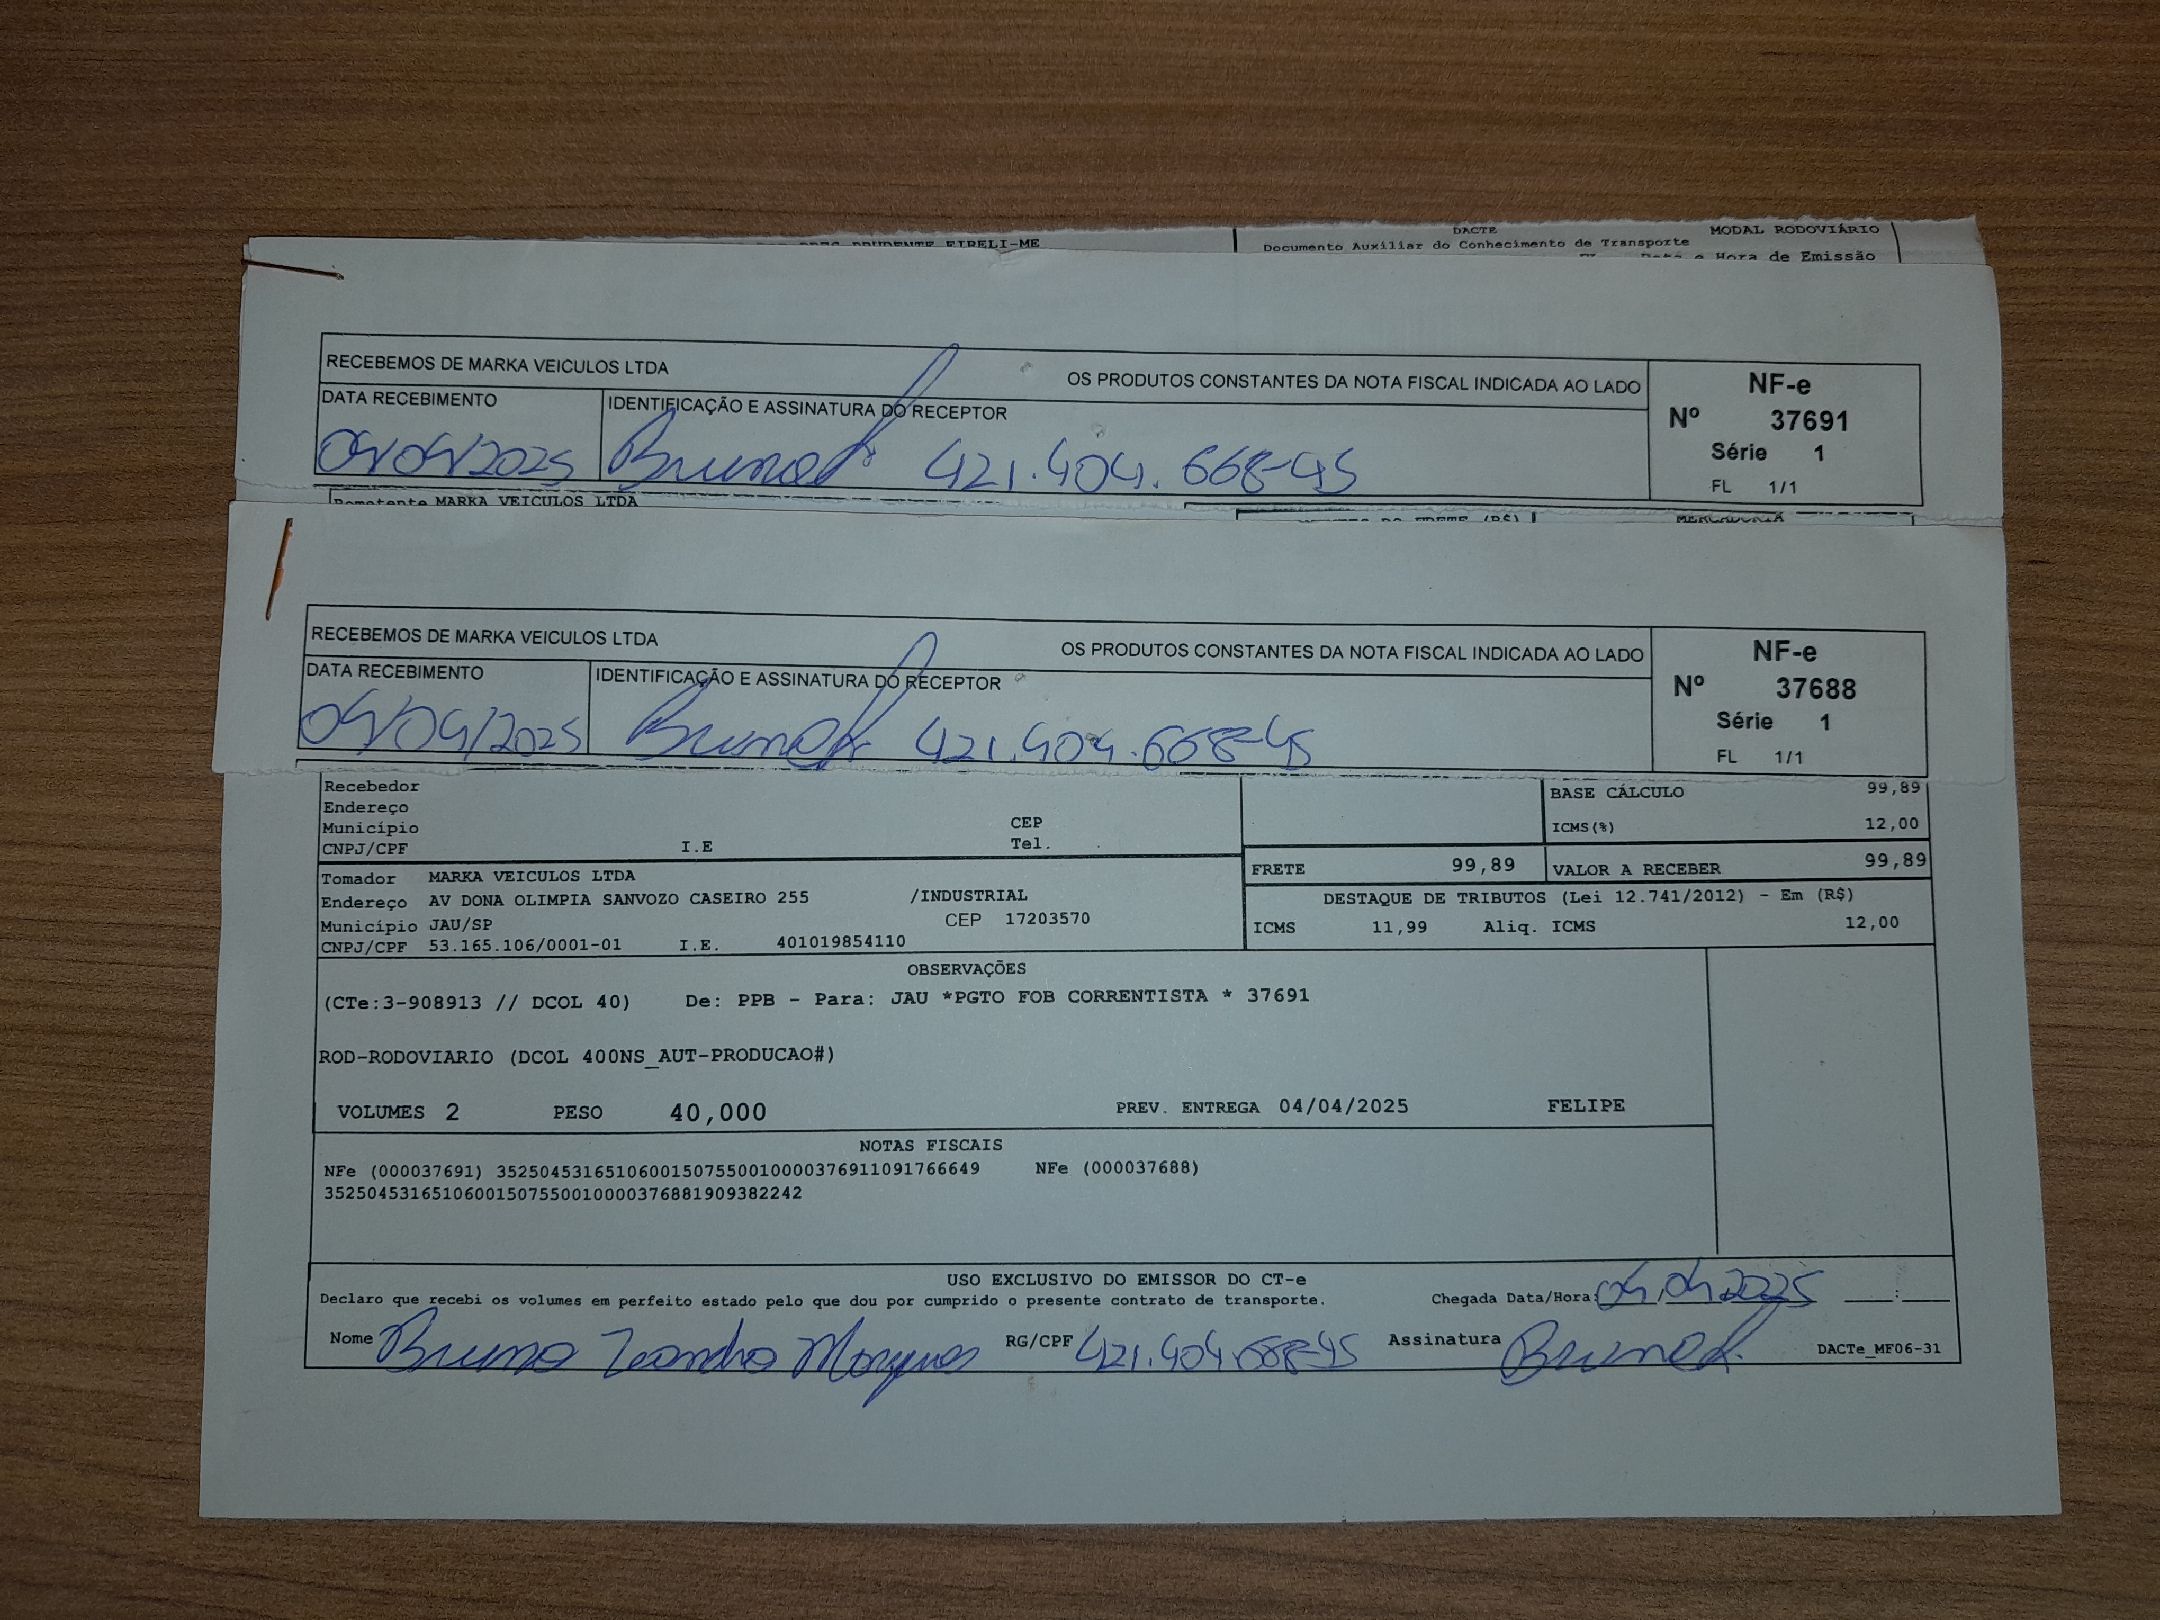 DACTE MODAL RODOVIÁRIO
PRUDENTE EIRELI-ME Documento Auxiliar do Conhecimento de Transporte
Hora de Emissão
RECEBEMOS DE MARKA VEICULOS LTDA OS PRODUTOS CONSTANTES DA NOTA FISCAL INDICADA AO LADO
NF-e
Nº 37691
Série 1
FL 1/1
DATA RECEBIMENTO IDENTIFICAÇÃO E ASSINATURA DO RECEPTOR
04/04/2025 Bruno 421.404.668-45
Remetente MARKA VEICULOS LTDA
MERCADORIA
RECEBEMOS DE MARKA VEICULOS LTDA OS PRODUTOS CONSTANTES DA NOTA FISCAL INDICADA AO LADO
NF-e
Nº 37688
Série 1
FL 1/1
DATA RECEBIMENTO IDENTIFICAÇÃO E ASSINATURA DO RECEPTOR
04/04/2025 Bruno 421.404.668-45
Recebedor
Endereço
Município CEP
CNPJ/CPF I.E Tel.
BASE CÁLCULO 99,89
ICMS(%) 12,00
FRETE 99,89 VALOR A RECEBER 99,89
Tomador MARKA VEICULOS LTDA
Endereço AV DONA OLIMPIA SANVOZO CASEIRO 255 /INDUSTRIAL
Município JAU/SP CEP 17203570
CNPJ/CPF 53.165.106/0001-01 I.E. 401019854110
DESTAQUE DE TRIBUTOS (Lei 12.741/2012) - Em (R$)
ICMS 11,99 Aliq. ICMS 12,00
OBSERVAÇÕES
(CTe:3-908913 // DCOL 40) De: PPB - Para: JAU *PGTO FOB CORRENTISTA * 37691
ROD-RODOVIARIO (DCOL 400NS_AUT-PRODUCAO#)
VOLUMES 2 PESO 40,000 PREV. ENTREGA 04/04/2025 FELIPE
NOTAS FISCAIS
NFe (000037691) 35250453165106001507550010000376911091766649 NFe (000037688)
35250453165106001507550010000376881909382242
USO EXCLUSIVO DO EMISSOR DO CT-e
Declaro que recebi os volumes em perfeito estado pelo que dou por cumprido o presente contrato de transporte. Chegada Data/Hora: 04.04.2025 ____:____
Nome Bruno Leandro Marques RG/CPF 421.404.668-45 Assinatura Bruno DACTe_MF06-31